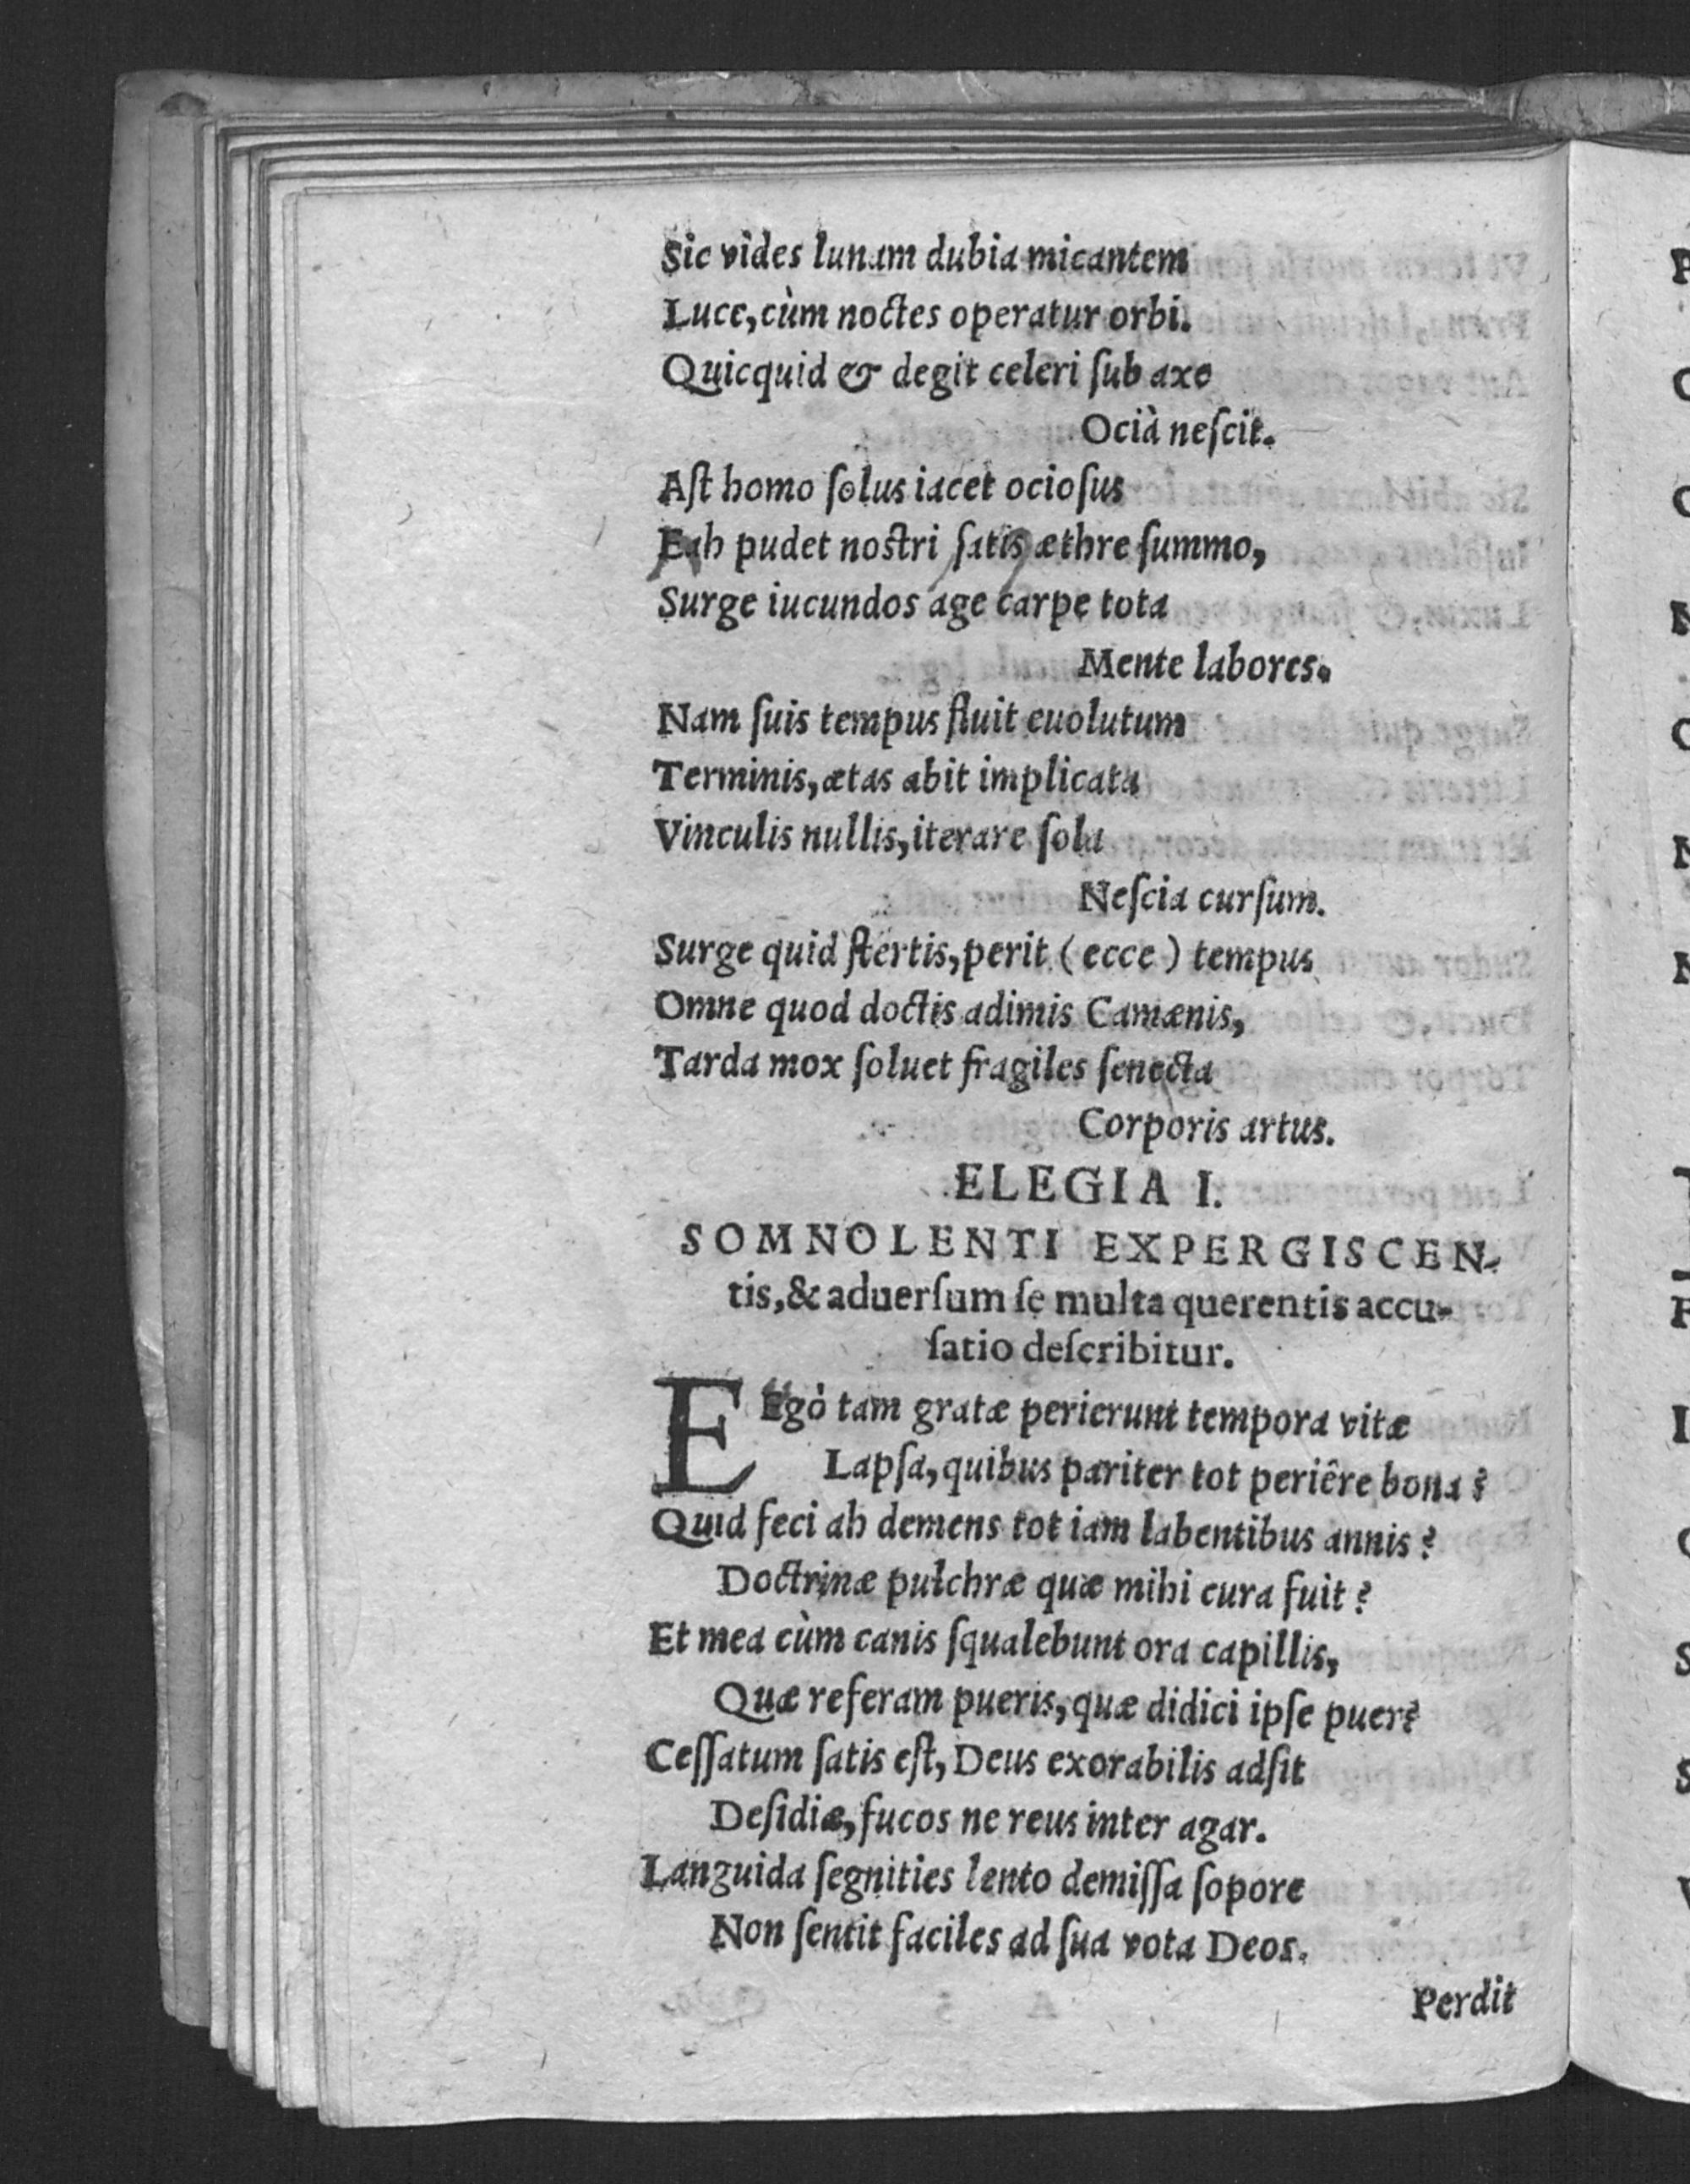 Sic vides lunam dubia micantem
Luce, cùm noctes operatur orbi.
Quicquid & degit celeri ſub axe
Ocià neſcit.
Aſt homo ſolus iacet ocioſus
Eah pudet nostri ſatis æthre ſummo,
Surge iucundos age carpe tota
Mente labores.
Nam ſuis tempus fluit euolutum
Terminis, ætas abit implicata
Vinculis nullis, iterare ſola
Neſcia curſum.
Surge quid ſtertis, perit (ecce) tempus
Omne quod doctis adimis Camænis,
Tarda mox ſoluet fragiles ſenecta
Corporis artus.
ELEGIA I.
SOMNOLENTI EXPERGISCEN-
tis, & aduerſum ſe multa querentis accu-
ſatio deſcribitur.
EEgò tam gratæ perierunt tempora vitæ
Lapſa, quibus pariter tot periêre bona?
Quid feci ah demens tot iam labentibus annis?
Doctrinæ pulchræ quæ mihi cura fuit?
Et mea cùm canis ſqualebunt ora capillis,
Quæ referam pueris, quæ didici ipſe puer?
Ceſſatum ſatis eſt, Deus exorabilis adſit
Deſidiæ, fucos ne reus inter agar.
Languida ſegnities lento demiſſa ſopore
Non ſentit faciles ad ſua vota Deos.
Perdit